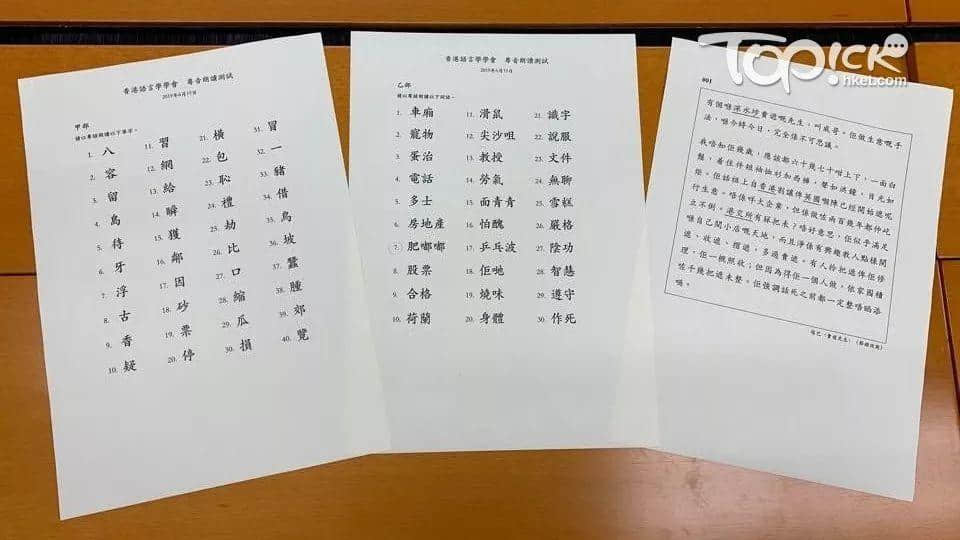 TOPICK
hket.com
香港語言學學會 粵音朗讀測試
2019年6月15日
甲部
請以粵語朗讀以下單字。
1. 八 11. 習 21. 橫 31. 冒
2. 容 12. 網 22. 包 32. 一
3. 留 13. 給 23. 恥 33. 豬
4. 島 14. 瞬 24. 禮 34. 借
5. 待 15. 獲 25. 劫 35. 鳥
6. 牙 16. 鄰 26. 比 36. 坡
7. 浮 17. 因 27. 口 37. 蠶
8. 古 18. 砂 28. 縮 38. 腫
9. 香 19. 票 29. 瓜 39. 郊
10. 疑 20. 停 30. 損 40. 覽
香港語言學學會 粵音朗讀測試
2019年6月15日
乙部
請以粵語朗讀以下詞語。
1. 車廂 11. 滑鼠 21. 識字
2. 寵物 12. 尖沙咀 22. 說服
3. 蛋治 13. 教授 23. 文件
4. 電話 14. 勞氣 24. 無聊
5. 多士 15. 面青青 25. 雪糕
6. 房地產 16. 怕醜 26. 嚴格
7. 肥嘟嘟 17. 乒乓波 27. 陰功
8. 股票 18. 佢哋 28. 智慧
9. 合格 19. 燒味 29. 遵守
10. 荷蘭 20. 身體 30. 作死
001
有個喺深水埗賣遮嘅先生，叫威哥。佢做生意嘅手
法，喺今時今日，完全係不可思議。
我唔知佢幾歲，應該都六十幾七十咁上下，一面白
鬚，着住件短袖恤衫加西褲，聲如洪鐘，目光如
炬。佢話祖上自香港割讓俾英國嗰陣已經開始遮呢
行生意。唔係吓大企業，但係做咗兩百幾年都仲屹
立不倒。港交所有睇把未？唔好意思，佢似乎滿足
喺自己開小店嘅天地，而且淨係有興趣教人點樣開
遮、收遮、摺遮，多過賣遮。有人拎把遮俾佢修
理，佢一概照收；但因為得佢一個人做，依家囤積
咗千幾把遮未整。佢強調話死之前都一定整唔晒添
喎。